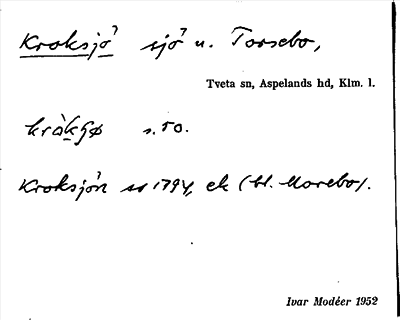 Kroksjö sjö n. Torsebo,
Tveta sn, Aspelands hd, Klm. l.
s. 50.
Kroksjön 1794, ek (bl. Morebo).
Ivar Modéer 1952